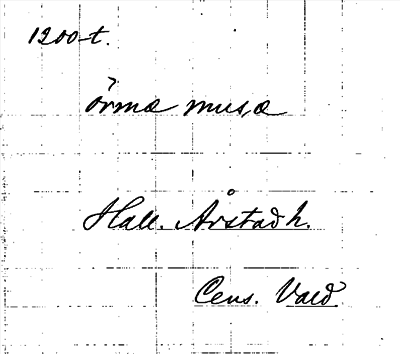 1200-t.
örmæ musæ
Hall. Årstad h.
Cens. Vald